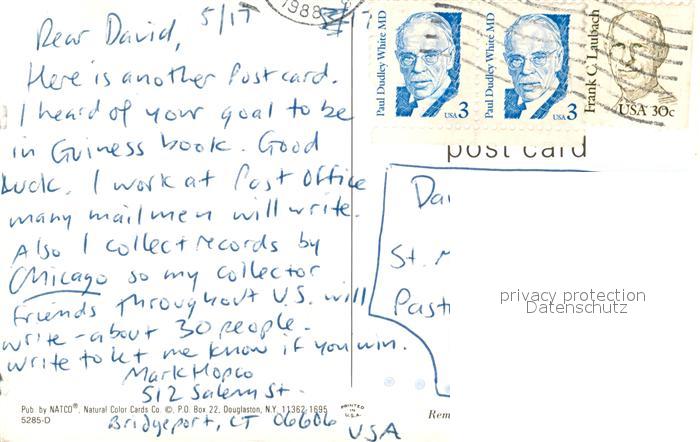 5/17
1988
Dear David,
Here is another Postcard.
I heard of your goal to be
in Guiness book. Good
Luck. I work at Post Office
many mailmen will write.
Also I collect records by
Chicago so my collector
friends throughout U.S. will
write - about 30 people.
write to let me know if you win.
Mark Hopco
512 Salem St.
Bridgeport, CT 06606 USA
Pub. by NATCO®, Natural Color Cards Co. ©, P.O. Box 22, Douglaston, N.Y. 11362-1695
5285-D
PRINTED IN U.S.A.
Paul Dudley White MD
USA 3
Paul Dudley White MD
USA 3
Frank C. Laubach
USA 30c
post card
Da
St.
Past
privacy protection
Datenschutz
Rem